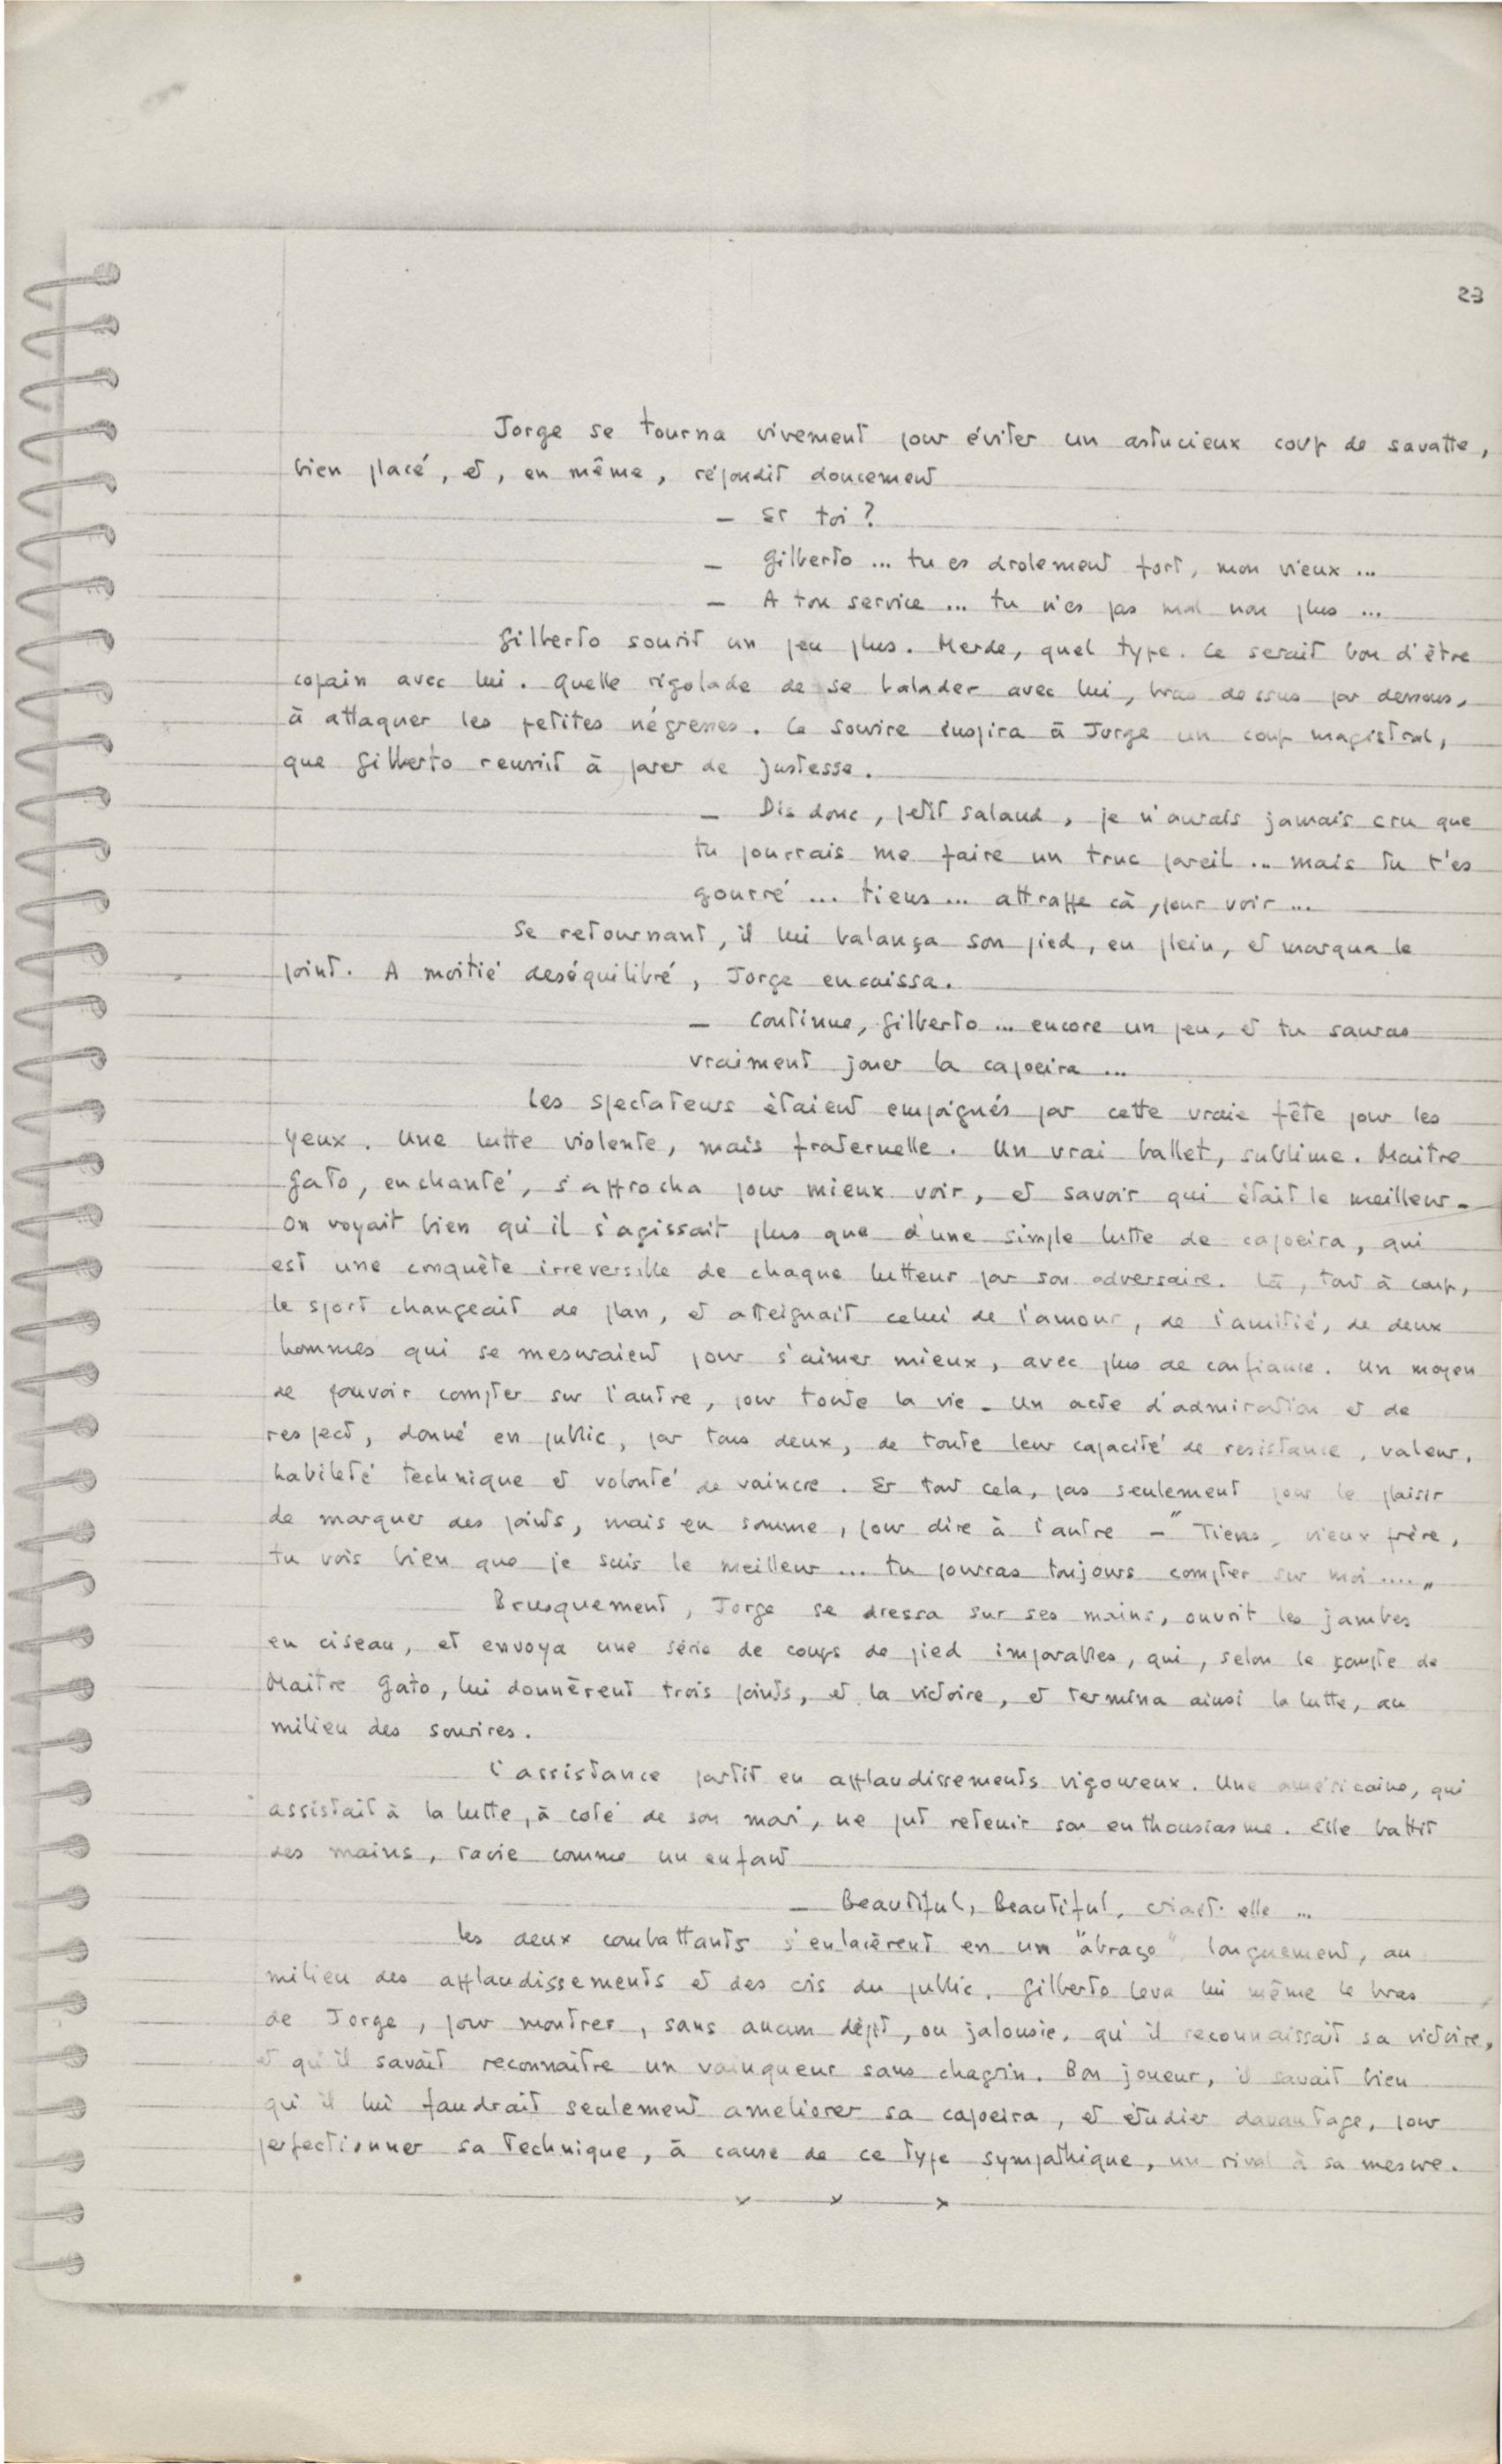 23
Jorge se tourna vivement pour éviter un astucieux coup de savatte,
bien placé, et, en même, répondit doucement
— Et toi ?
— Gilberto ... tu es drolement fort, mon vieux ...
— A ton service ... tu n'es pas mal non plus ...
Gilberto sourit un peu plus. Merde, quel type. Ce serait bon d'être
copain avec lui. Quelle rigolade de se balader avec lui, bras dessus par dessous,
à attaquer les petites négresses. Ce sourire inspira à Jorge un coup magistral,
que Gilberto reussit à parer de justesse.
— Dis donc, petit salaud, je n'aurais jamais cru que
tu pourrais me faire un truc pareil ... mais tu t'es
gourré ... tiens ... attrappe cà, pour voir ...
Se retournant, il lui balança son pied, en plein, et marqua le
point. A moitié deséquilibré, Jorge encaissa.
— Continue, Gilberto ... encore un peu, et tu sauras
vraiment jouer la capoeira ...
Les spectateurs ètaient empoignés par cette vraie fête pour les
yeux. Une lutte violente, mais fraternelle. Un vrai ballet, sublime. Maitre
Gato, enchanté, s'approcha pour mieux voir, et savoir qui ètait le meilleur.
On voyait bien qu'il s'agissait plus que d'une simple lutte de capoeira, qui
est une conquète irreversible de chaque lutteur par son adversaire. Là, tout à coup,
le sport changeait de plan, et atteignait celui de l'amour, de l'amitié, de deux
hommes qui se mesuraient pour s'aimer mieux, avec plus de confiance. Un moyen
de pouvoir compter sur l'autre, pour toute la vie. Un acte d'admiration et de
respect, donné en public, par tous deux, de toute leur capacité de resistance, valeur,
habileté technique et volonté de vaincre. Et tout cela, pas seulement pour le plaisir
de marquer des points, mais en somme, pour dire à l'autre — "Tiens, vieux frère,
tu vois bien que je suis le meilleur ... tu pourras toujours compter sur moi ...."
Brusquement, Jorge se dressa sur ses mains, ouvrit les jambes
en ciseau, et envoya une série de coups de pied imparables, qui, selon le compte de
Maitre Gato, lui donnèrent trois points, et la victoire, et termina ainsi la lutte, au
milieu des sourires.
L'assistance partit en applaudissements vigoureux. Une américaine, qui
assistait à la lutte, à coté de son mari, ne put retenir son enthousiasme. Elle battit
des mains, ravie comme un enfant
— Beautiful, Beautiful, criait-elle ...
Les deux combattants s'enlacèrent en un "abraço" longuement, au
milieu des applaudissements et des cris du public. Gilberto leva lui même le bras
de Jorge, pour montrer, sans aucun dépit, ou jalousie, qu'il reconnaissait sa victoire,
et qu'il savait reconnaitre un vainqueur sans chagrin. Bon joueur, il savait bien
qu'il lui faudrait seulement ameliorer sa capoeira, et ètudier davantage, pour
perfectionner sa technique, à cause de ce type sympathique, un rival à sa mesure.
x x x